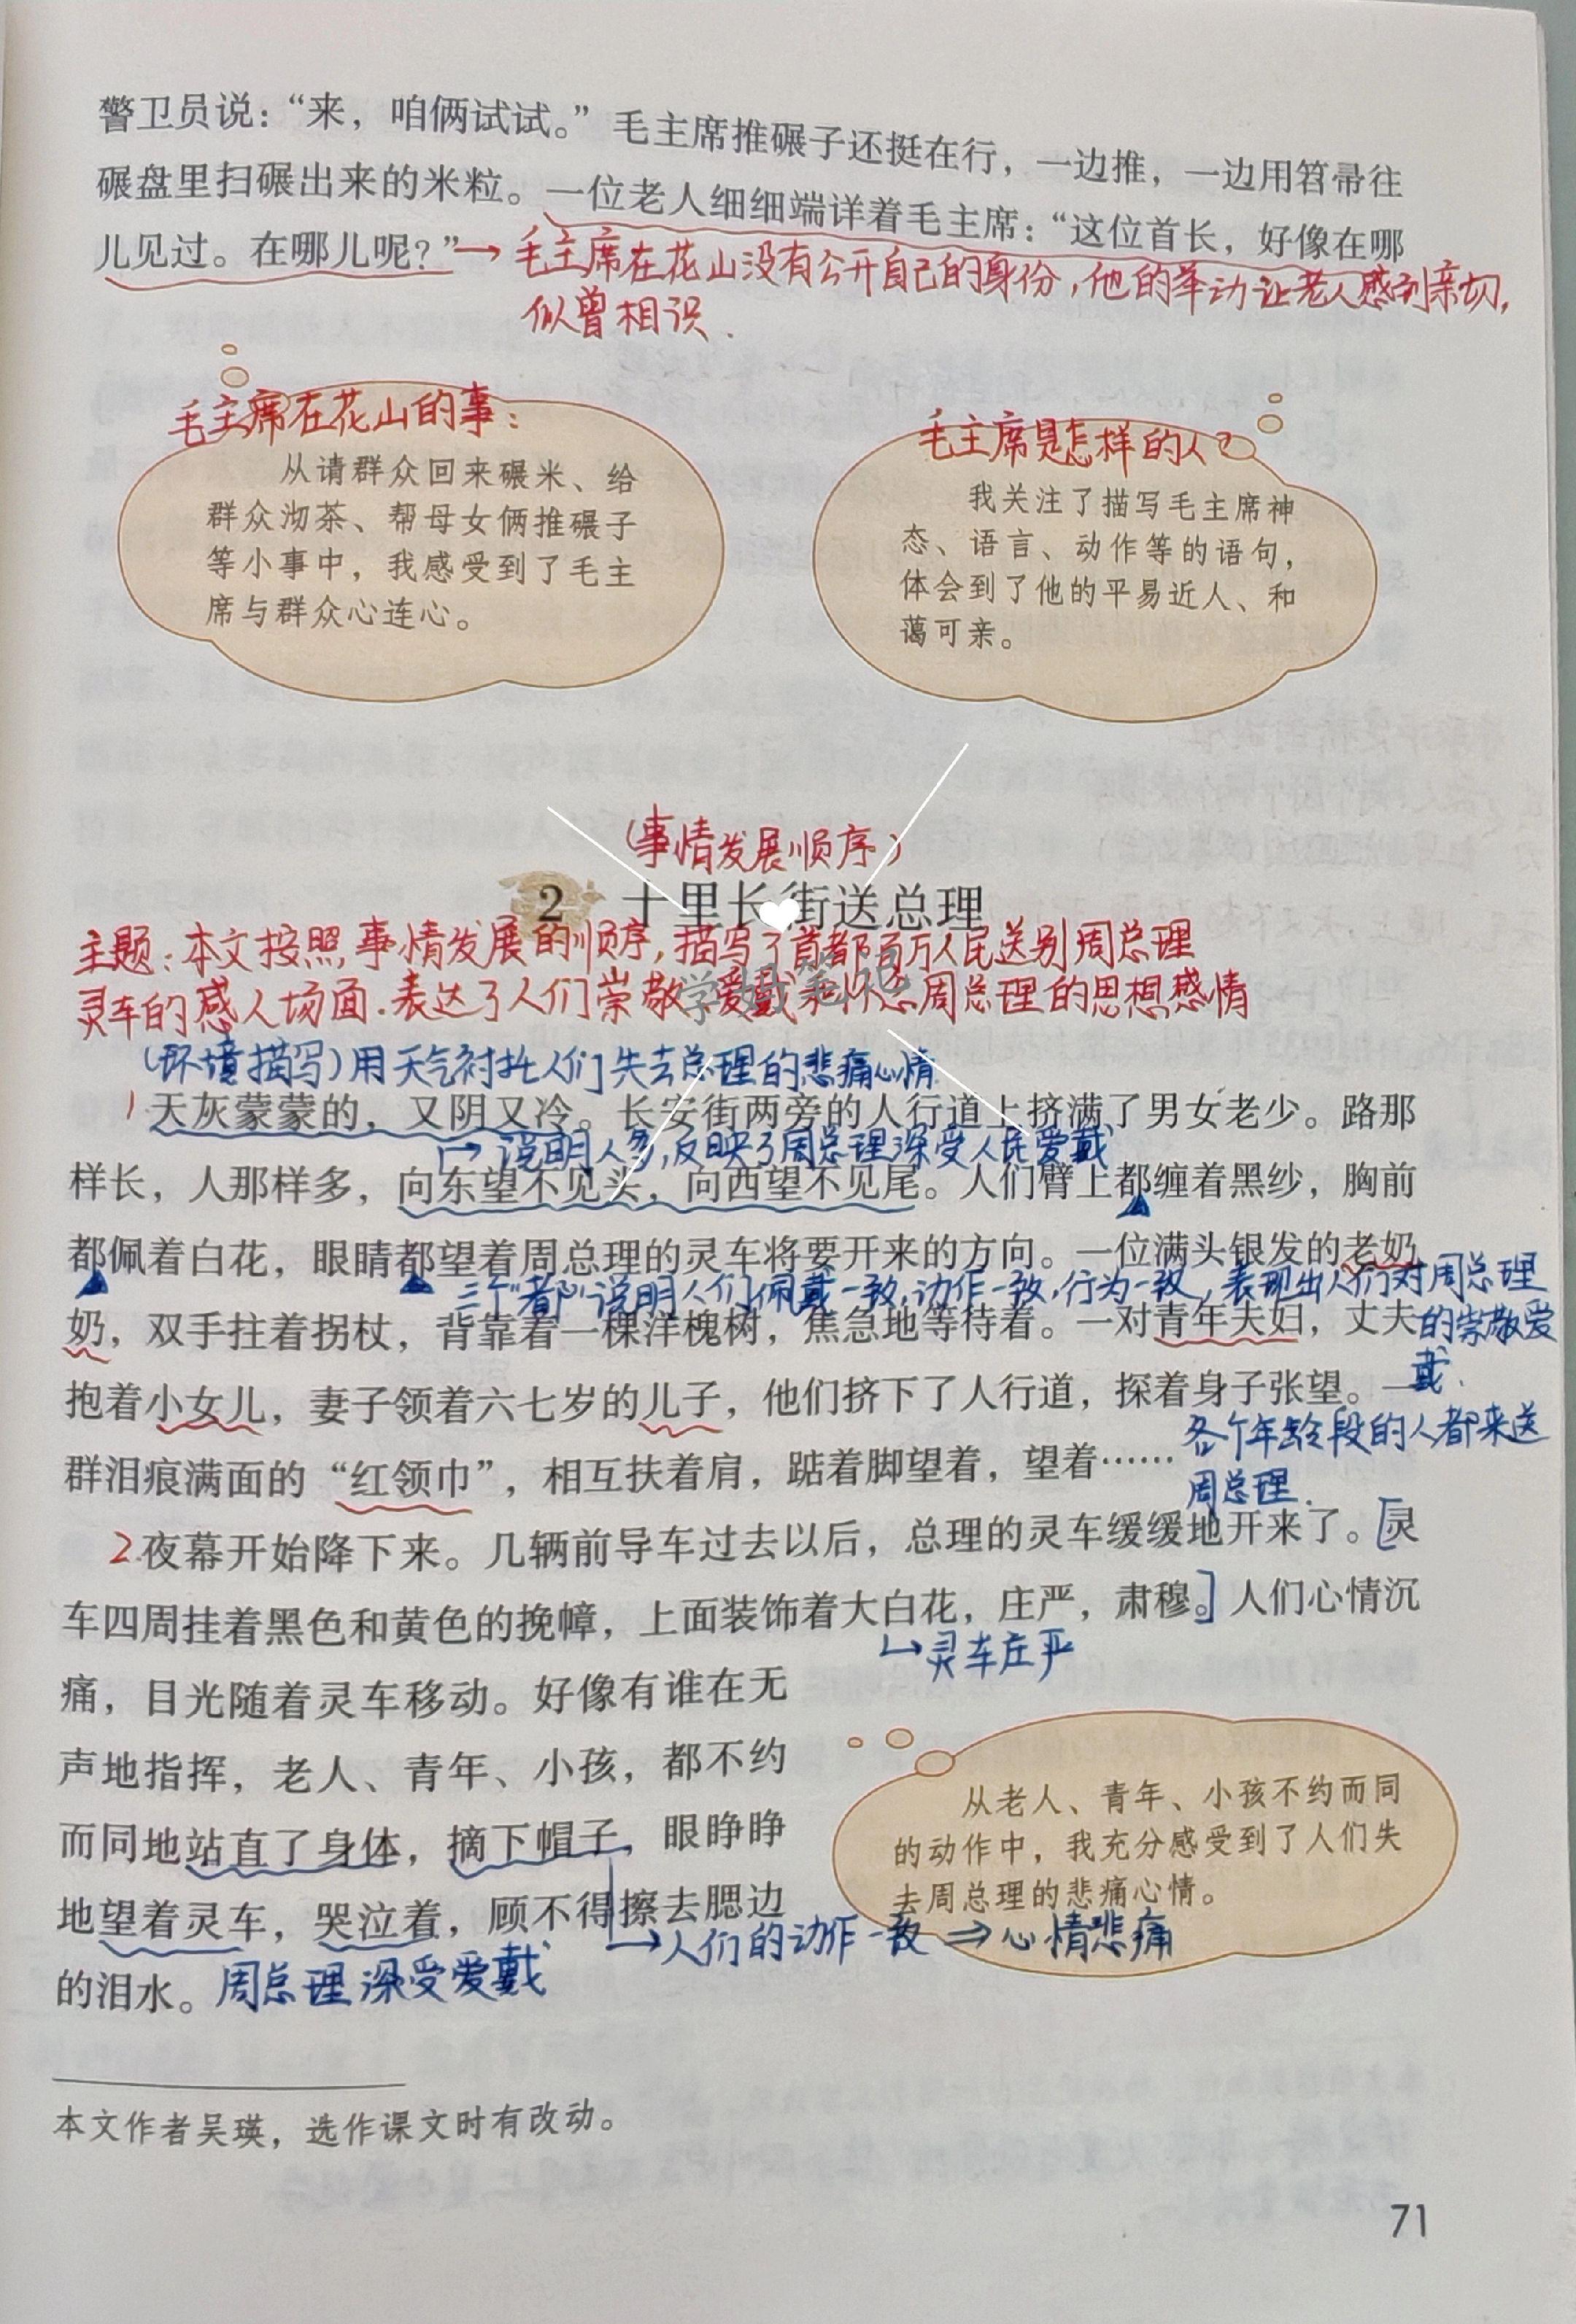 警卫员说：“来，咱俩试试。”毛主席推碾子还挺在行，一边推，一边用笤帚往
碾盘里扫碾出来的米粒。一位老人细细端详着毛主席：“这位首长，好像在哪
儿见过。在哪儿呢？”
→毛主席在花山没有公开自己的身份，他的举动让老人感到亲切，
似曾相识.
毛主席在花山的事：
从请群众回来碾米、给
群众沏茶、帮母女俩推碾子
等小事中，我感受到了毛主
席与群众心连心。
毛主席是怎样的人？
我关注了描写毛主席神
态、语言、动作等的语句，
体会到了他的平易近人、和
蔼可亲。
（事情发展顺序）
2 十里长街送总理
主题：本文按照事情发展的顺序，描写了首都百万人民送别周总理
灵车的感人场面.表达了人们崇敬、爱戴和怀念周总理的思想感情
学好笔记
（环境描写）用天气衬托人们失去总理的悲痛心情
1 天灰蒙蒙的，又阴又冷。长安街两旁的人行道上挤满了男女老少。路那
→说明人多，反映了周总理深受人民爱戴
样长，人那样多，向东望不见头，向西望不见尾。人们臂上都缠着黑纱，胸前
都佩着白花，眼睛都望着周总理的灵车将要开来的方向。一位满头银发的老奶
三个“都”说明人们佩戴一致，动作一致，行为一致，表现出人们对周总理
的崇敬爱
戴.
奶，双手拄着拐杖，背靠着一棵洋槐树，焦急地等待着。一对青年夫妇，丈夫
抱着小女儿，妻子领着六七岁的儿子，他们挤下了人行道，探着身子张望。一
群泪痕满面的“红领巾”，相互扶着肩，踮着脚望着，望着……
各个年龄段的人都来送
周总理.
2.夜幕开始降下来。几辆前导车过去以后，总理的灵车缓缓地开来了。[灵
车四周挂着黑色和黄色的挽幛，上面装饰着大白花，庄严，肃穆。]人们心情沉
→灵车庄严
痛，目光随着灵车移动。好像有谁在无
声地指挥，老人、青年、小孩，都不约
而同地站直了身体，摘下帽子，眼睁睁
地望着灵车，哭泣着，顾不得擦去腮边
的泪水。
→人们的动作一致⇒心情悲痛
周总理深受爱戴
从老人、青年、小孩不约而同
的动作中，我充分感受到了人们失
去周总理的悲痛心情。
本文作者吴瑛，选作课文时有改动。
71